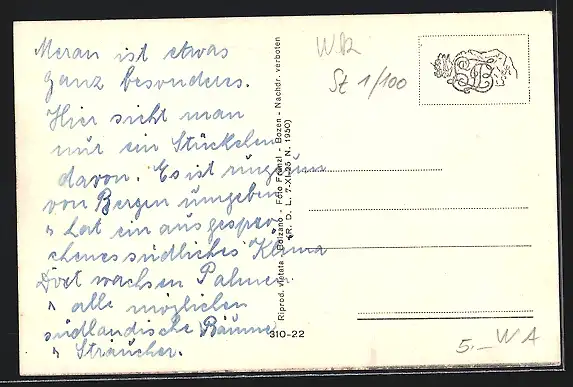 Meran ist etwas
ganz besonderes.
Hier sieht man
nur ein Stückchen
davon. Es ist ringsum
von Bergen umgeben
" hat ein ausgespro-
chenes südliches Klima
Dort wachsen Palmen
" alle möglichen
südländische Bäume
" Sträucher.
Riprod. vietata - Bolzano - Foto Fränzl - Bozen - Nachdr. verboten
(R. D. L. 7-XI-25 N. 1950)
310-22
St 1/100
5.- W A